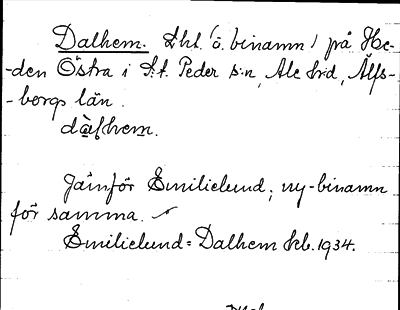 Dalhem. Lht. (ö. binamn) på He-
-den Östra i S:t Peder s:n, Ale hrd, Älfs-
-borgs län.
dàlhem.
Jämför Emilielund, ny-binamn
för samma.
Emilielund = Dalhem Jkb. 1934.